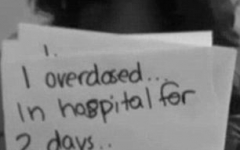 1.
I overdosed...
In hospital for
2 days..